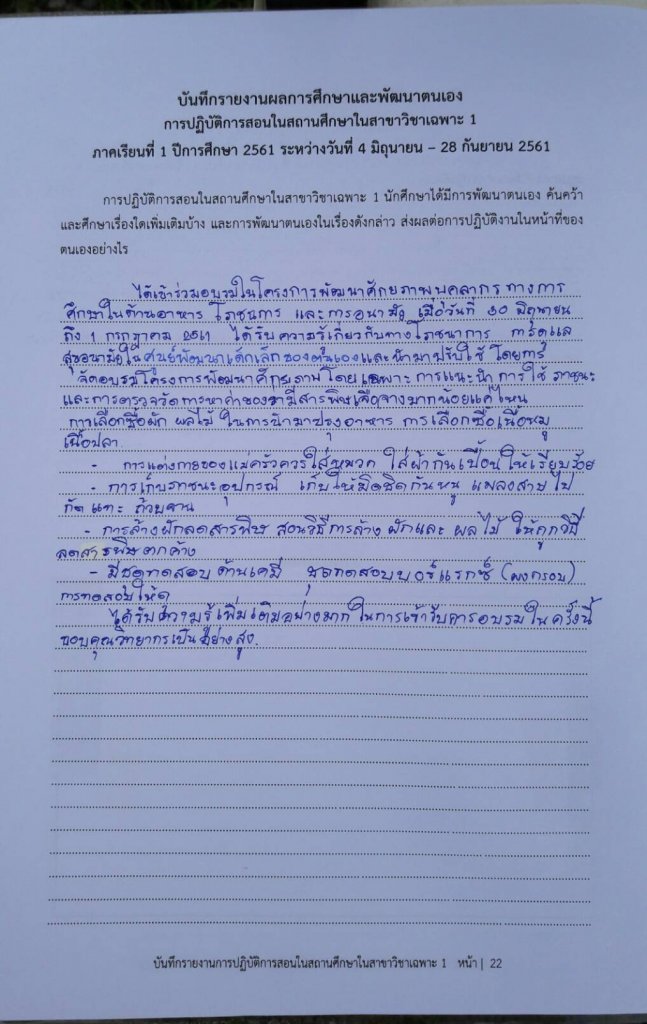 บันทึกรายงานผลการศึกษาและพัฒนาตนเอง
การปฏิบัติการสอนในสถานศึกษาในสาขาวิชาเฉพาะ 1
ภาคเรียนที่ 1 ปีการศึกษา 2561 ระหว่างวันที่ 4 มิถุนายน – 28 กันยายน 2561
การปฏิบัติการสอนในสถานศึกษาในสาขาวิชาเฉพาะ 1 นักศึกษาได้มีการพัฒนาตนเอง ค้นคว้า
และศึกษาเรื่องใดเพิ่มเติมบ้าง และการพัฒนาตนเองในเรื่องดังกล่าว ส่งผลต่อการปฏิบัติงานในหน้าที่ของ
ตนเองอย่างไร
ได้เข้าร่วมอบรมในโครงการพัฒนาศักยภาพบุคลากรทางการ
ศึกษาในด้านอาหาร โภชนาการ และการอนามัย เมื่อวันที่ 30 มิถุนายน
ถึง 1 กรกฎาคม 2561 ได้รับความรู้เกี่ยวกับทางโภชนาการ การดูแล
สุขอนามัยในศูนย์พัฒนาเด็กเล็กของตนเองและนำมาปรับใช้ โดยการ
จัดอบรมโครงการพัฒนาศักยภาพโดยเฉพาะ การแนะนำการใช้ ภาชนะ
และการตรวจวัดการหาค่าของว่ามีสารพิษเจือจางมากน้อยแค่ไหน
การเลือกซื้อผัก ผลไม้ ในการนำมาปรุงอาหาร การเลือกซื้อเนื้อหมู
เนื้อปลา
- การแต่งกายของแม่ครัวควรใส่หมวก ใส่ผ้ากันเปื้อนให้เรียบร้อย
- การเก็บภาชนะอุปกรณ์ เก็บให้มิดชิดกันหนู แมลงสาบไป
กัดแทะ ถ้วยจาน
- การล้างผักลดสารพิษ สอนวิธีการล้าง ผักและ ผลไม้ ให้ถูกวิธี
ลดสารพิษตกค้าง
- มีชุดทดสอบด้านเคมี ชุดทดสอบบอร์แรกซ์ (ผงกรอบ)
การทดสอบให้ดู
ได้รับความรู้เพิ่มเติมอย่างมากในการเข้ารับการอบรมในครั้งนี้
ขอบคุณวิทยากรเป็นอย่างสูง.
บันทึกรายงานการปฏิบัติการสอนในสถานศึกษาในสาขาวิชาเฉพาะ 1 หน้า | 22